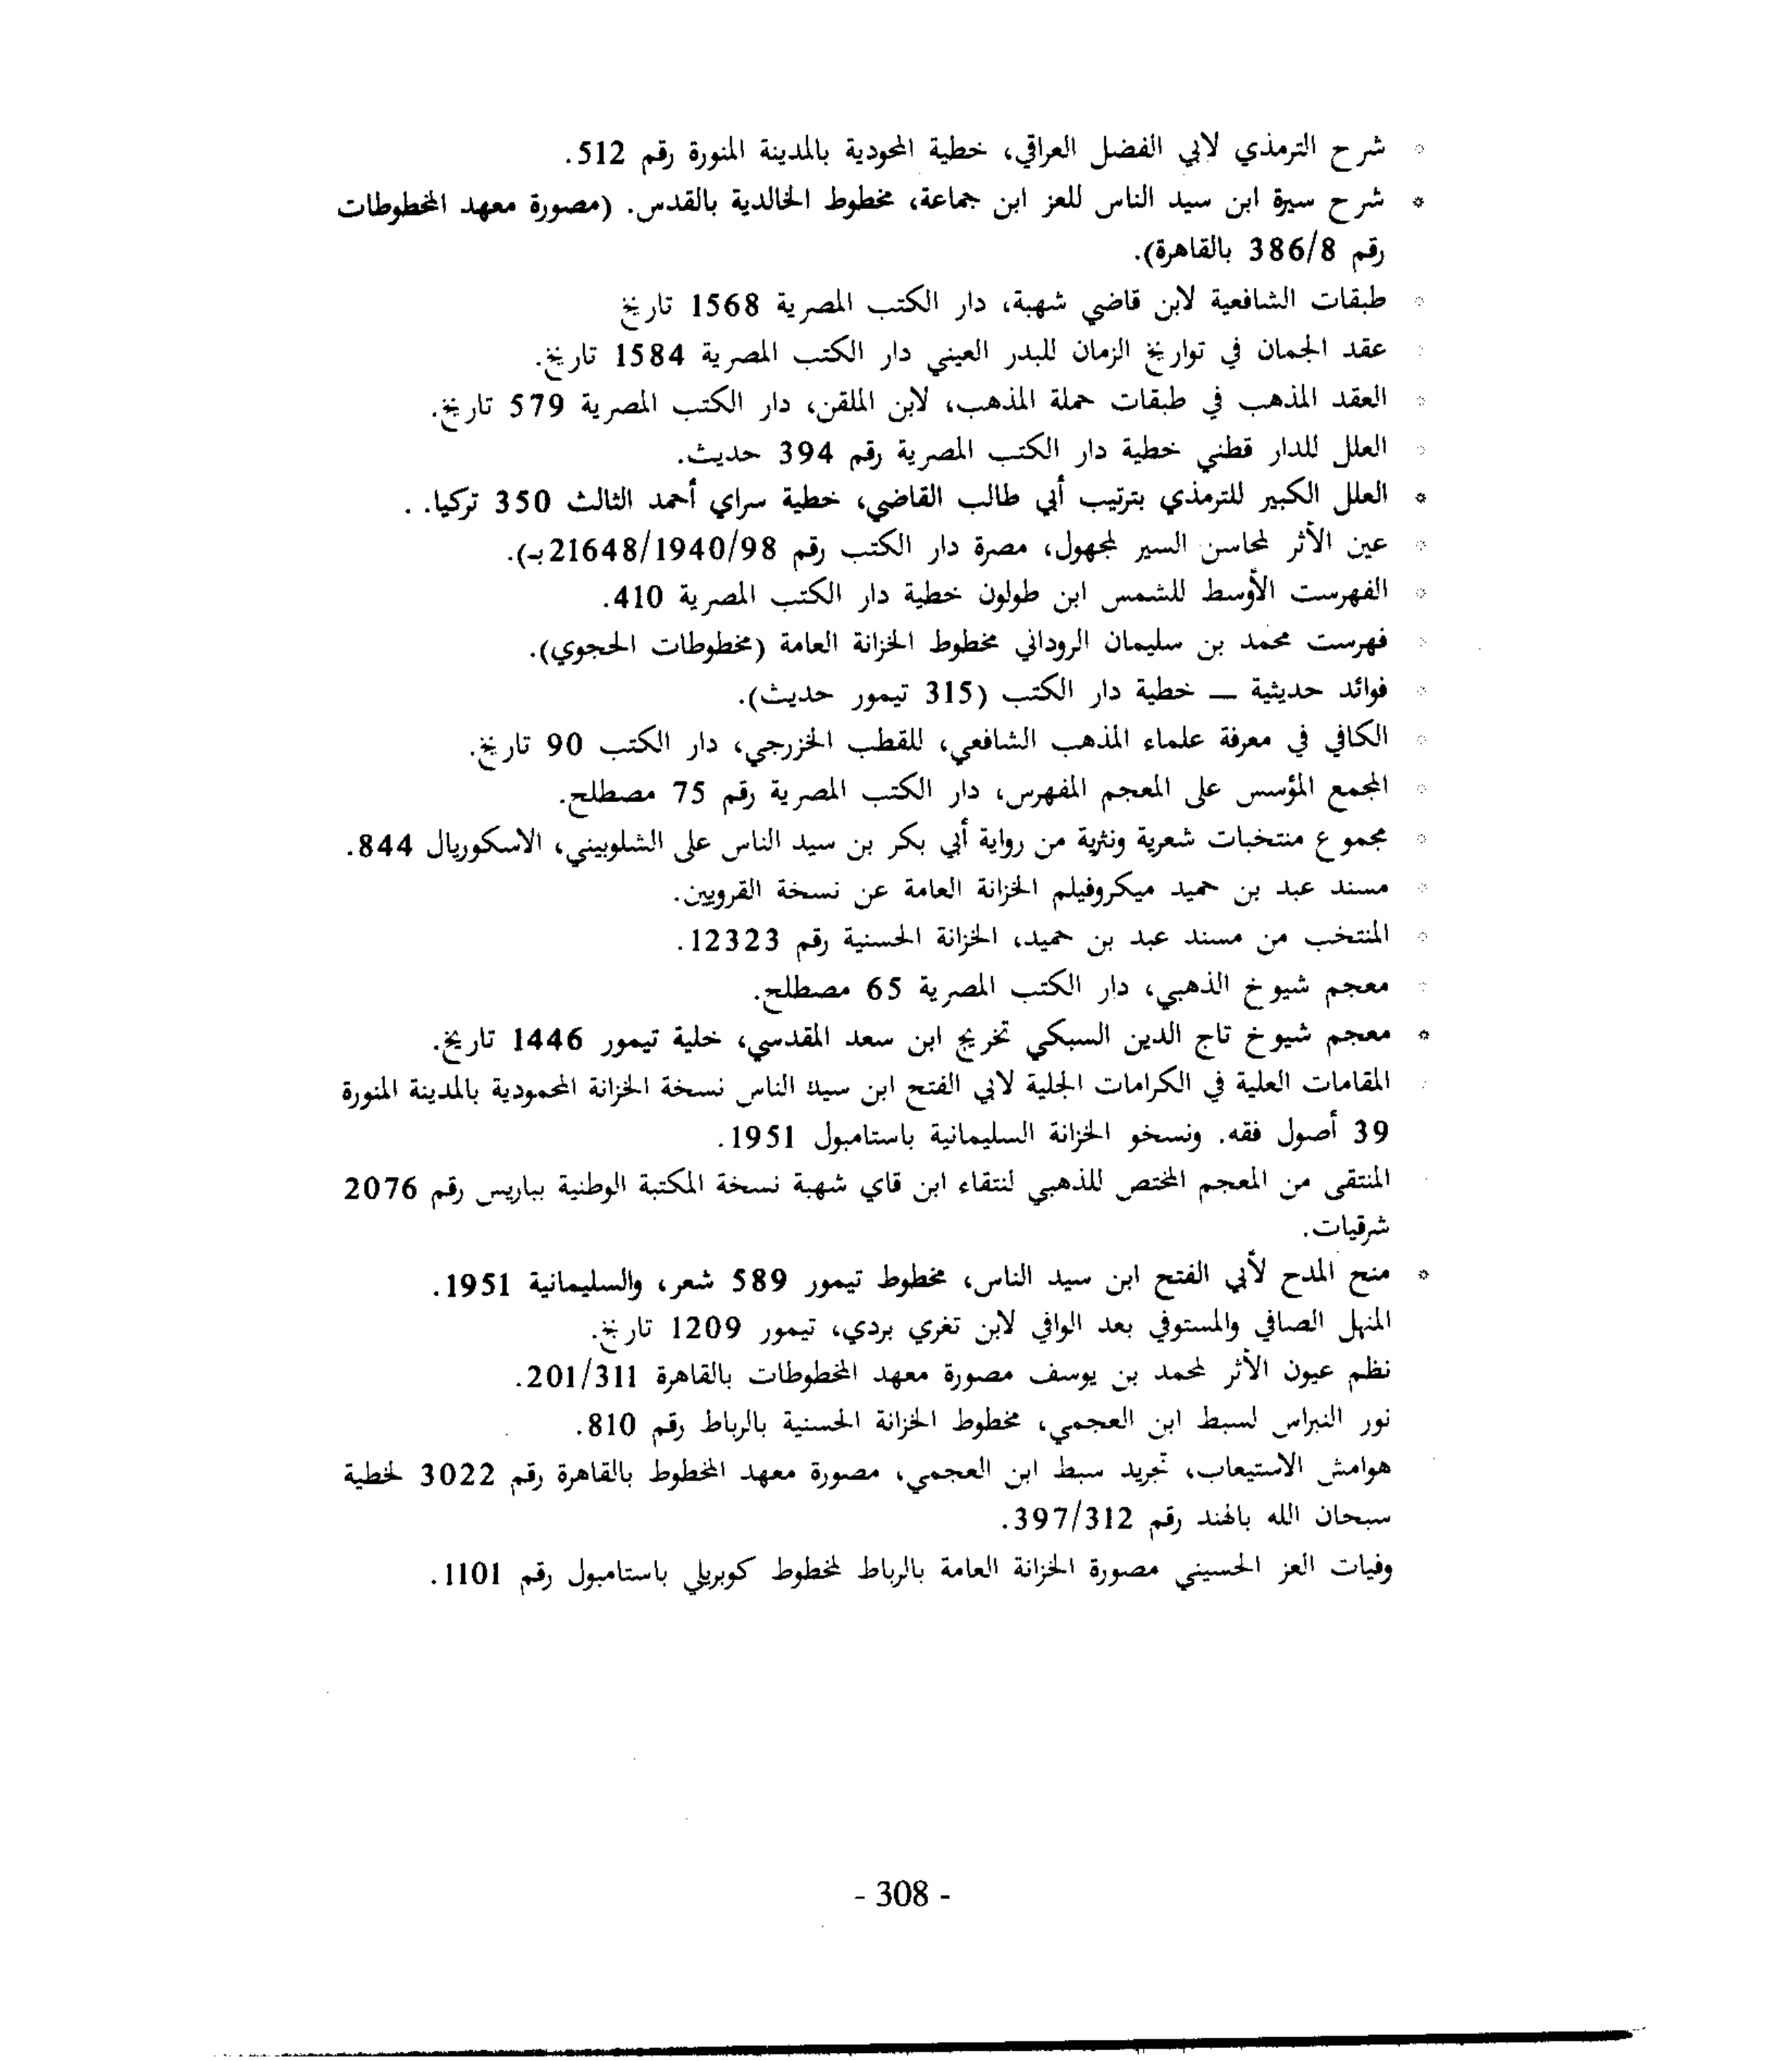 شرح الترمذي لابي الفضل العراقي، خطية المحودية بالمدينة المنورة رقم 512.
* شرح سيرة ابن سيد الناس للعز ابن جماعة، مخطوط الخالدية بالقدس. (مصورة معهد المخطوطات
رقم 386/8 بالقاهرة).
طبقات الشافعية لابن قاضي شهبة، دار الكتب المصرية 1568 تاريخ
عقد الجمان في تواريخ الزمان للبدر العيني دار الكتب المصرية 1584 تاريخ.
العقد المذهب في طبقات حملة المذهب، لابن الملقن، دار الكتب المصرية 579 تاريخ.
العلل للدار قطني خطية دار الكتب المصرية رقم 394 حديث.
* العلل الكبير للترمذي بترتيب أبي طالب القاضي، خطية سراي أحمد الثالث 350 تركيا. .
عين الأثر لمحاسن السير لمجهول، مصرة دار الكتب رقم 21648/1940/98بـ).
الفهرست الأوسط للشمس ابن طولون خطية دار الكتب المصرية 410.
فهرست محمد بن سليمان الروداني مخطوط الخزانة العامة (مخطوطات الحجوي).
فوائد حديثية — خطية دار الكتب (315 تيمور حديث).
الكافي في معرفة علماء المذهب الشافعي، للقطب الخزرجي، دار الكتب 90 تاريخ.
المجمع المؤسس على المعجم المفهرس، دار الكتب المصرية رقم 75 مصطلح.
مجموع منتخبات شعرية ونثرية من رواية أبي بكر بن سيد الناس على الشلوبيني، الاسكوريال 844.
مسند عبد بن حميد ميكروفيلم الخزانة العامة عن نسخة القرويين.
المنتخب من مسند عبد بن حميد، الخزانة الحسنية رقم 12323.
معجم شيوخ الذهبي، دار الكتب المصرية 65 مصطلح.
* معجم شيوخ تاج الدين السبكي تخريج ابن سعد المقدسي، خلية تيمور 1446 تاريخ.
المقامات العلية في الكرامات الجلية لابي الفتح ابن سيد الناس نسخة الخزانة المحمودية بالمدينة المنورة
39 أصول فقه. ونسخو الخزانة السليمانية باستامبول 1951.
المنتقى من المعجم المختص للذهبي لنتقاء ابن قاي شهبة نسخة المكتبة الوطنية بباريس رقم 2076
شرقيات.
* منح المدح لأبي الفتح ابن سيد الناس، مخطوط تيمور 589 شعر، والسليمانية 1951.
المنهل الصافي والمستوفي بعد الوافي لابن تغري بردي، تيمور 1209 تاريخ.
نظم عيون الأثر لمحمد بن يوسف مصورة معهد المخطوطات بالقاهرة 201/311.
نور النبراس لسبط ابن العجمي، مخطوط الخزانة الحسنية بالرباط رقم 810.
هوامش الاستيعاب، تجريد سبط ابن العجمي، مصورة معهد المخطوط بالقاهرة رقم 3022 لخطية
سبحان الله بالهند رقم 397/312.
وفيات العز الحسيني مصورة الخزانة العامة بالرباط لمخطوط كوبريلي باستامبول رقم 1101.
- 308 -